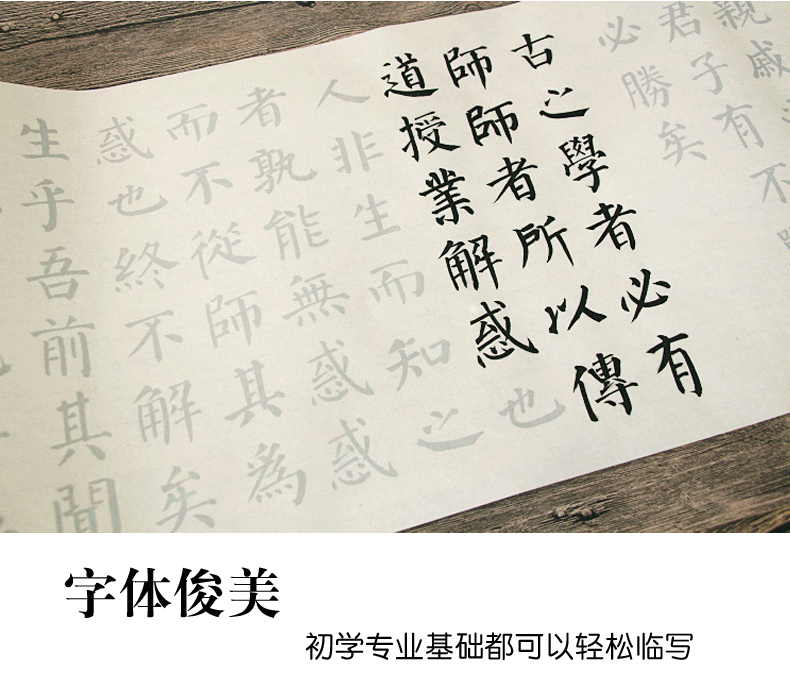 親戚
君子有不
必勝矣
古之學者必有
師師者所以傳
道授業解惑也
人非生而知之
者孰能無惑惑
而不從師其為
惑也終不解矣
生乎吾前其聞
字体俊美
初学专业基础都可以轻松临写